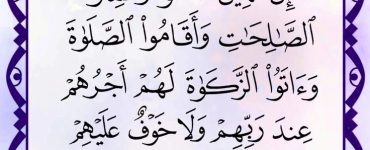 ٱلصَّٰلِحَٰتِ وَأَقَامُوا۟ ٱلصَّلَوٰةَ
وَءَاتَوُا۟ ٱلزَّكَوٰةَ لَهُمْ أَجْرُهُمْ
عِندَ رَبِّهِمْ وَلَا خَوْفٌ عَلَيْهِمْ